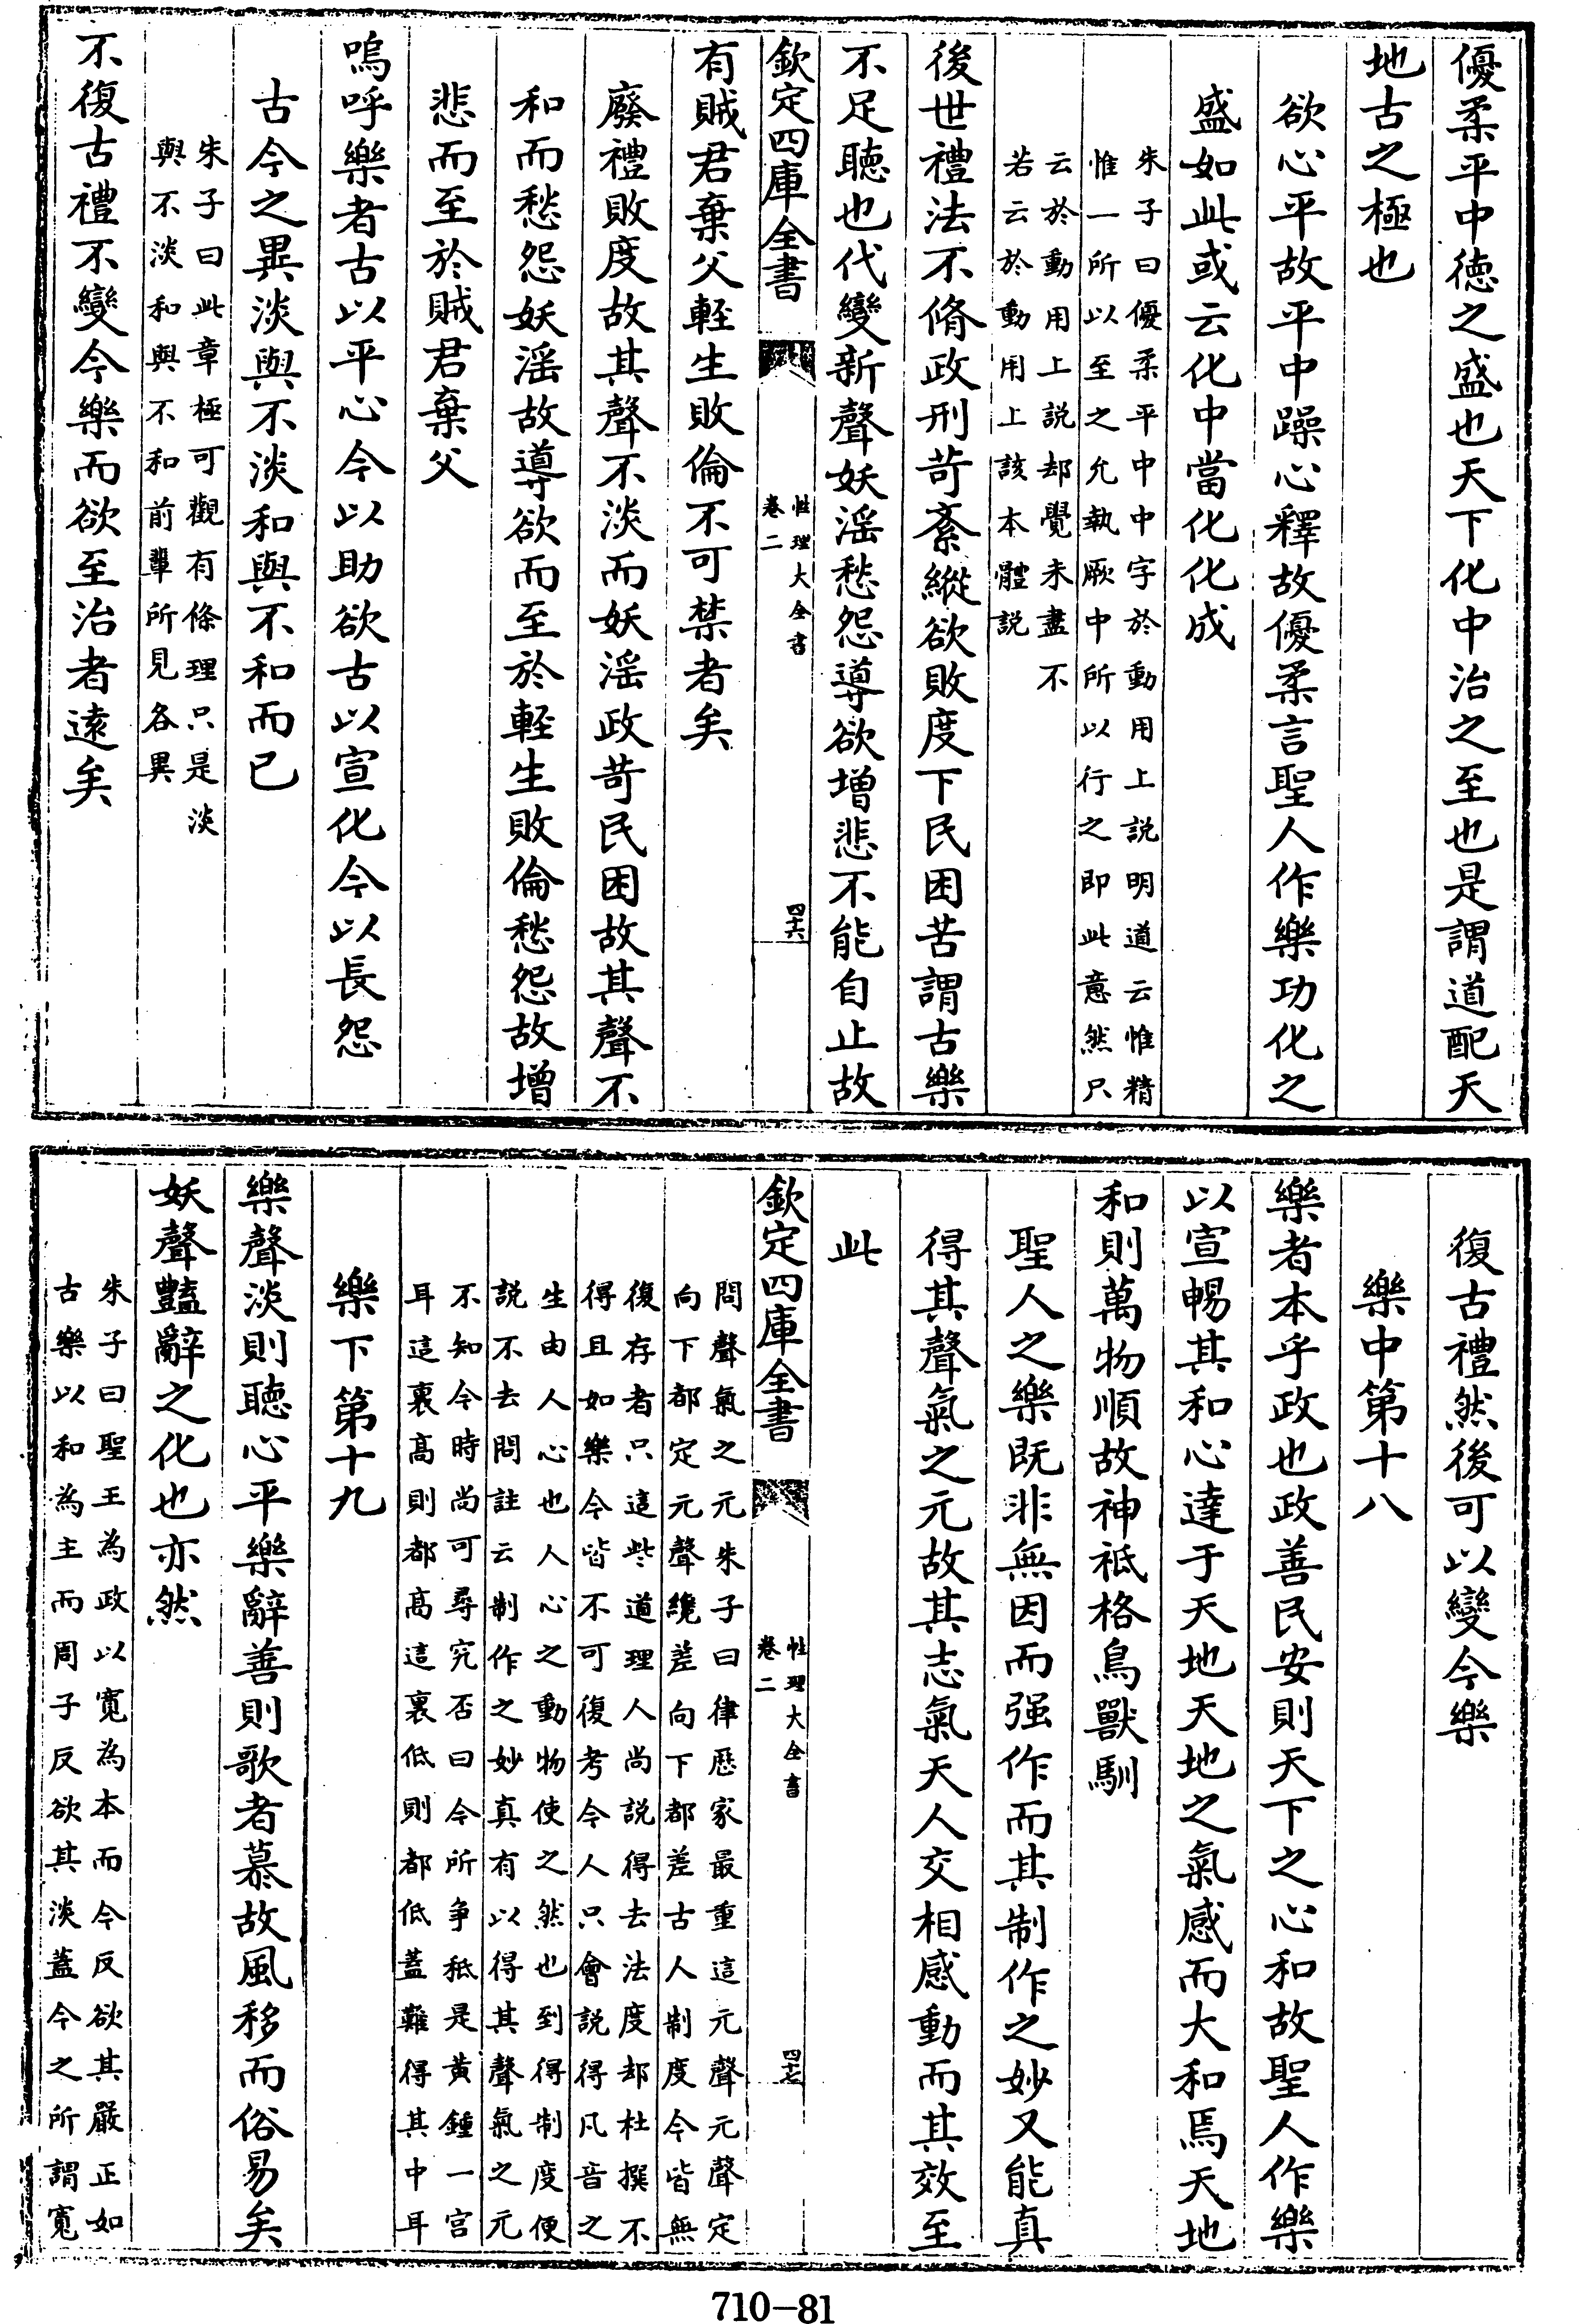 優柔平中徳之盛也天下化中治之至也是謂道配天
地古之極也
欲心平故平中躁心釋故優柔言聖人作樂功化之
盛如此或云化中當化化成
朱子曰優柔平中中字於動用上説明道云惟精
惟一所以至之允執厥中所以行之即此意然只
云於動用上説却覺未盡不
若云於動用上該本體説
後世禮法不脩政刑苛紊縱欲敗度下民困苦謂古樂
不足聽也代變新聲妖淫愁怨導欲增悲不能自止故
欽定四庫全書
性理大全書
卷二
四十六
有賊君棄父輕生敗倫不可禁者矣
廢禮敗度故其聲不淡而妖淫政苛民困故其聲不
和而愁怨妖淫故導欲而至於輕生敗倫愁怨故增
悲而至於賊君棄父
嗚呼樂者古以平心今以助欲古以宣化今以長怨
古今之異淡與不淡和與不和而已
朱子曰此章極可觀有條理只是淡
與不淡和與不和前輩所見各異
不復古禮不變今樂而欲至治者遠矣
復古禮然後可以變今樂
樂中第十八
樂者本乎政也政善民安則天下之心和故聖人作樂
以宣暢其和心達于天地天地之氣感而大和焉天地
和則萬物順故神祗格鳥獸馴
聖人之樂既非無因而强作而其制作之妙又能真
得其聲氣之元故其志氣天人交相感動而其效至
此
欽定四庫全書
性理大全書
卷二
四十七
問聲氣之元朱子曰律厯家最重這元聲元聲定
向下都定元聲纔差向下都差古人制度今皆無
復存者只這些道理人尚説得去法度却杜撰不
得且如樂今皆不可復考今人只會説得凡音之
生由人心也人心之動物使之然也到得制度便
説不去問註云制作之妙真有以得其聲氣之元
不知今時尚可尋究否曰今所爭秪是黃鍾一宫
耳這裏髙則都髙這裏低則都低蓋難得其中耳
樂下第十九
樂聲淡則聽心平樂辭善則歌者慕故風移而俗易矣
妖聲豔辭之化也亦然
朱子曰聖王為政以寛為本而今反欲其嚴正如
古樂以和為主而周子反欲其淡蓋今之所謂寛
710-81